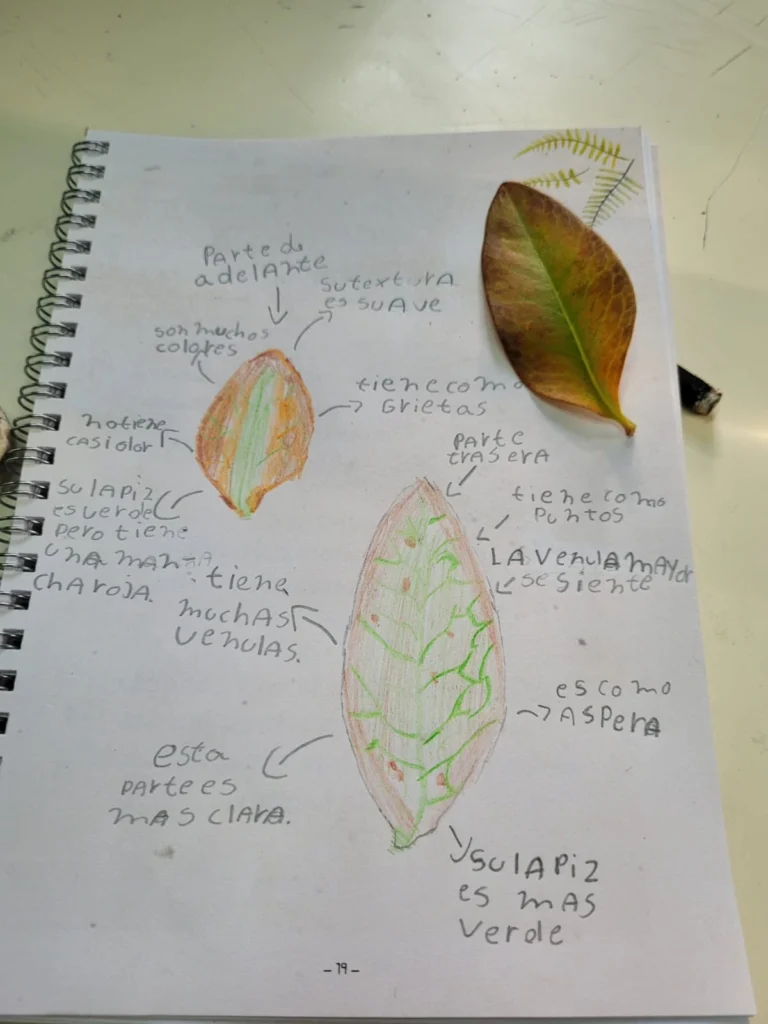 PArte de
adelAnte
su texturA
es suAve
son muchos
colores
tiene como
Grietas
no tiene
casi olor
su lApiz
es verde
pero tiene
unA mAn
chA rojA.
PArte
trAserA
tiene como
Puntos
LA venulA mAyor
se siente
tiene
muchAs
venulAs.
es como
AsperA
esta
PArte es
mAs clArA.
y su lApiz
es mAs
verde
- 19 -